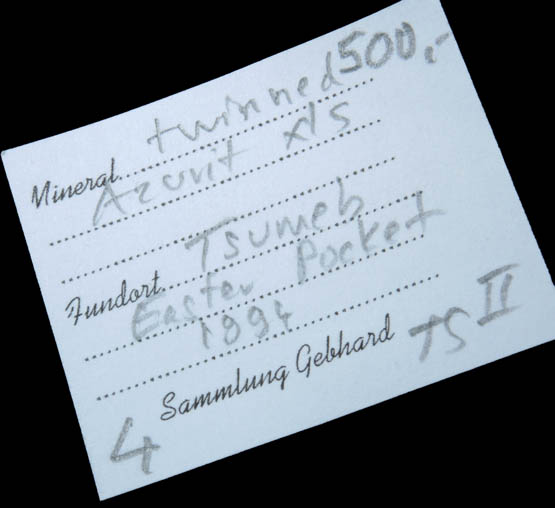 500,-
twinned
Mineral Azurit xls
Tsumeb
Fundort Easter Pocket
1994
Sammlung Gebhard TS II
4